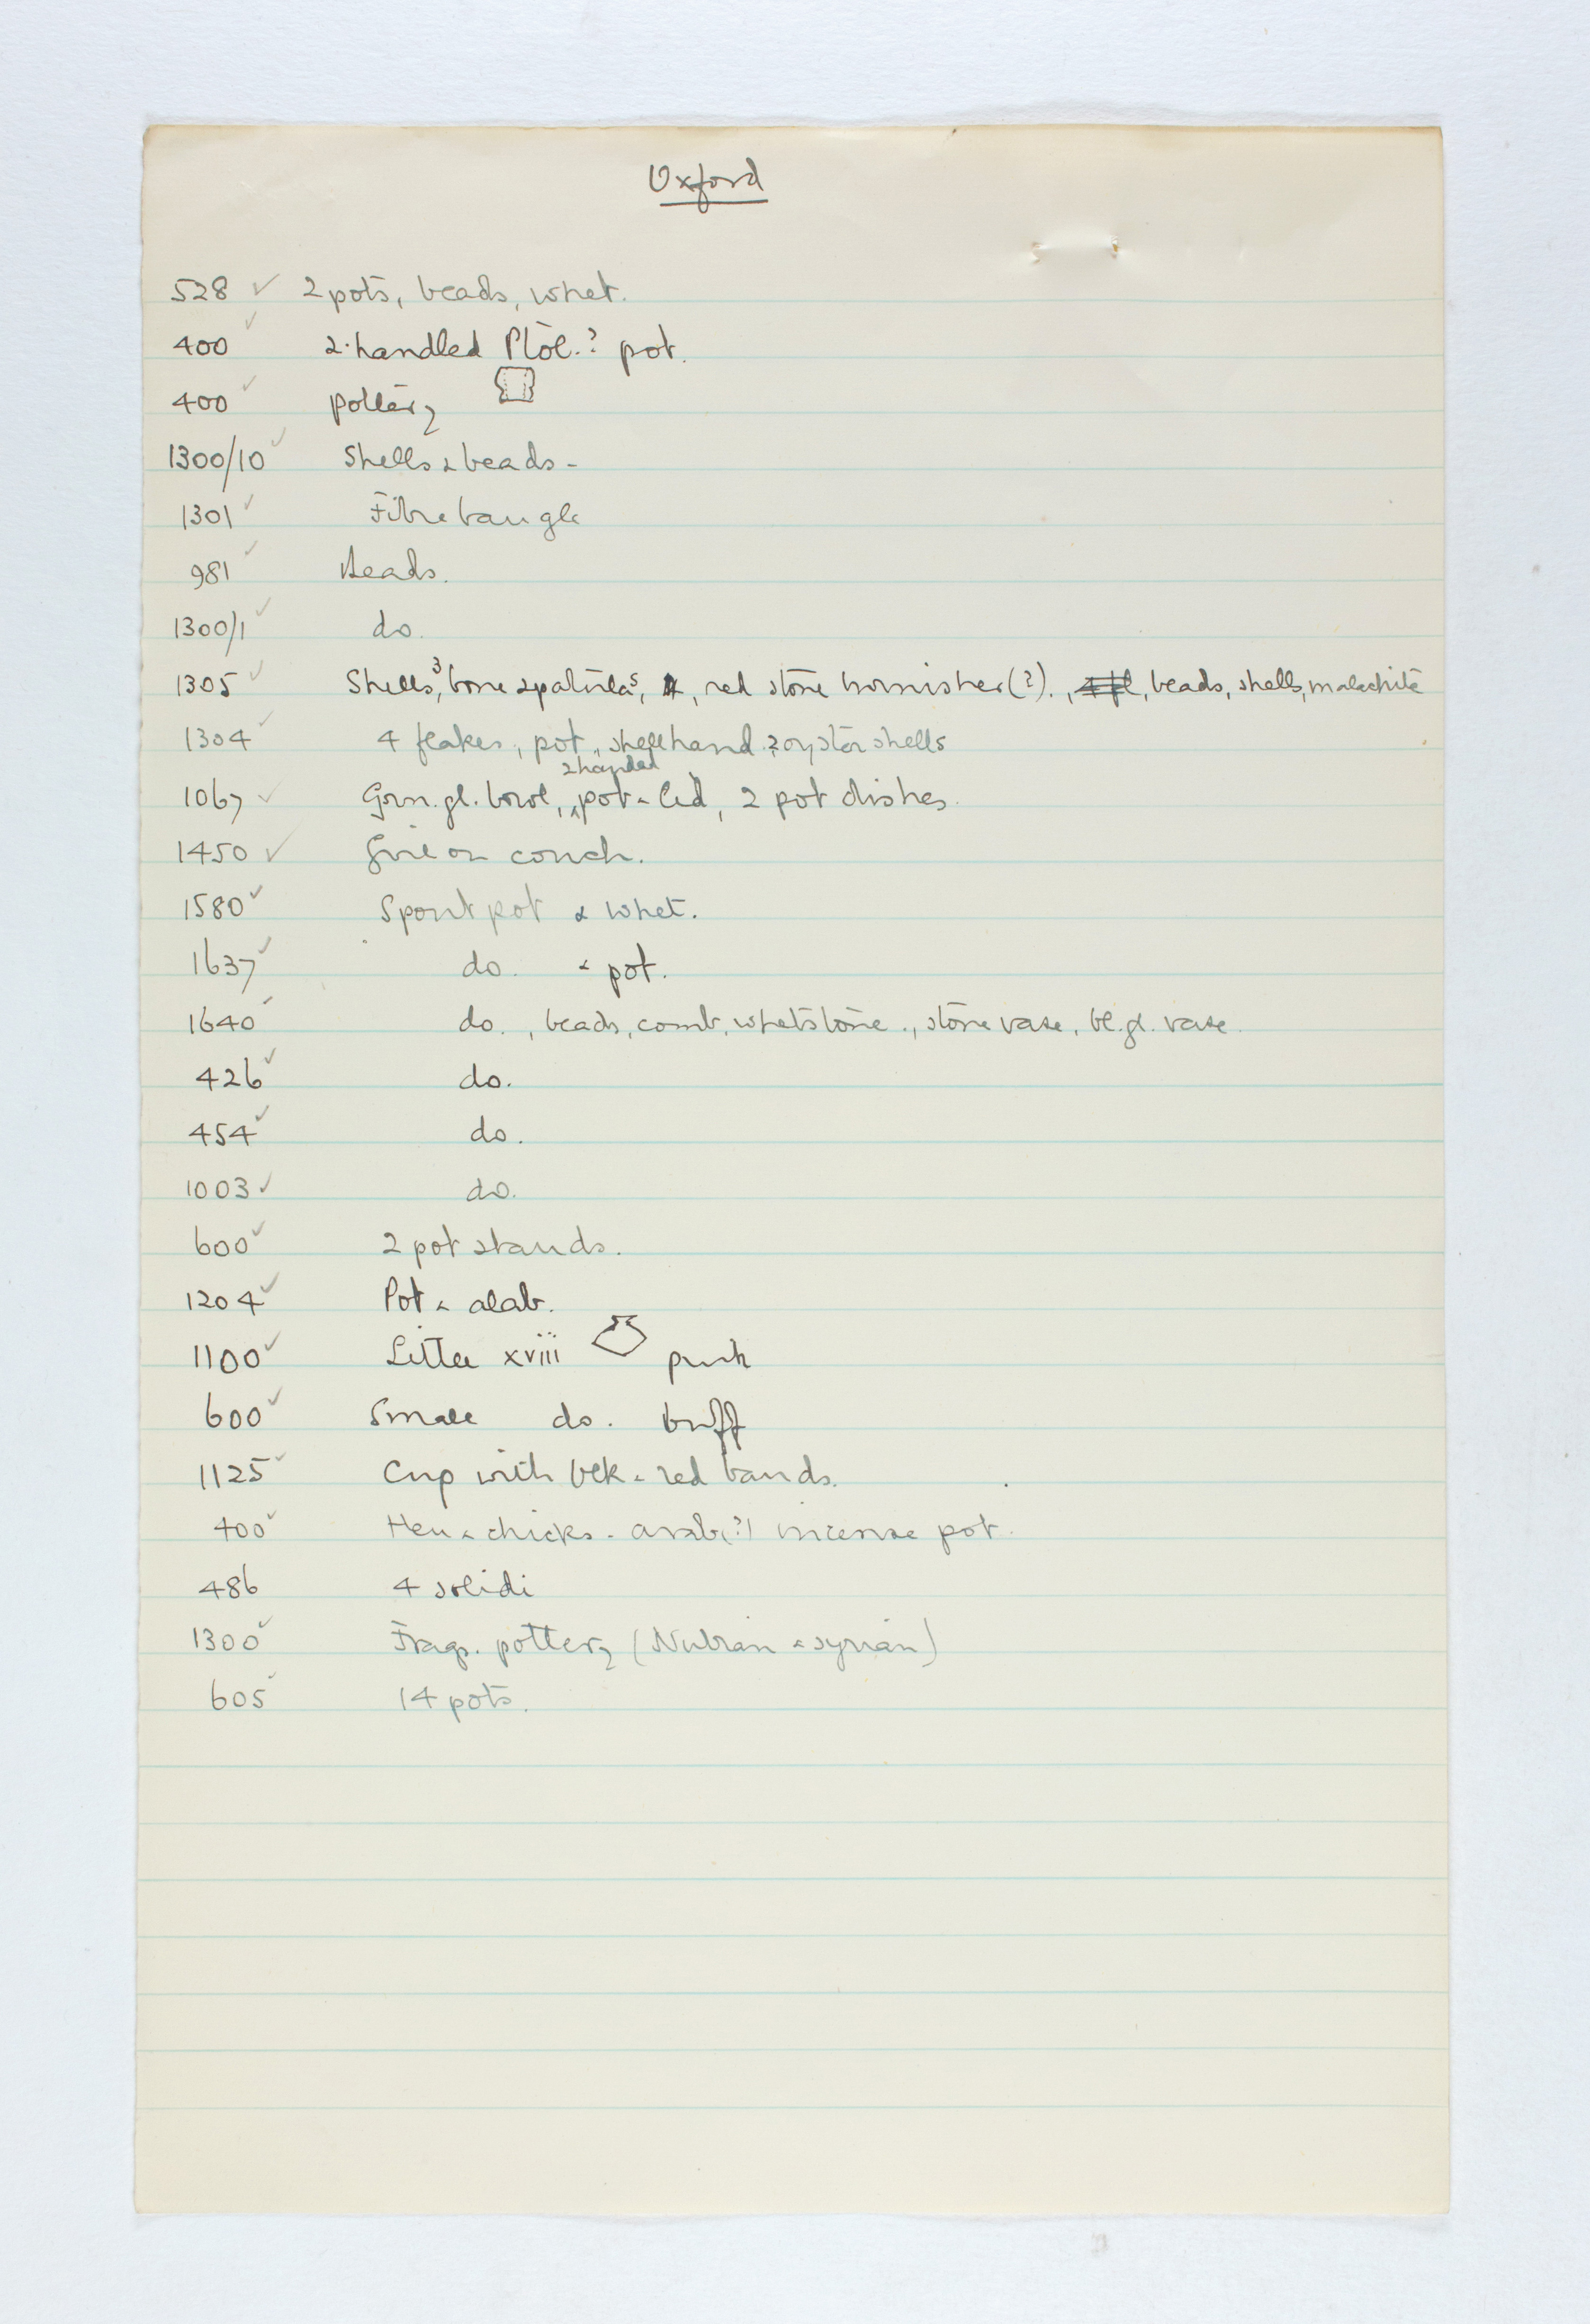 Oxford
528 ✓ 2 pots, beads, whet.
400 ✓ 2-handled Ptol.? pot.
400 ✓ pottery
1300/10 ✓ Shells & beads -
1301 ✓ Fibre bangle
981 ✓ Beads.
1300/1 ✓ do.
1305 ✓ Shells, 3 bone spatulas, red stone burnisher (?)., beads, shells, malachite
1304 ✓ 4 flakes, pot, shell hand. 2 oyster shells
1067 ✓ Grn. gl. bowl, 2 handled pot & lid, 2 pot dishes.
1450 ✓ Girl on couch.
1580 ✓ Spout pot & whet.
1637 ✓ do. & pot.
1640 ✓ do., beads, comb, whetstone., stone vase, bl. gl. vase.
426 ✓ do.
454 ✓ do.
1003 ✓ do.
600 ✓ 2 pot stands.
1204 ✓ Pot & alab.
1100 ✓ Little xviii pink
600 ✓ Small do. buff
1125 ✓ Cup with blk & red bands.
400 ✓ Hen & chicks - arab(?) incense pot.
486 4 solidi
1300 ✓ Frags. pottery (Nubian & Syrian)
605 ✓ 14 pots.